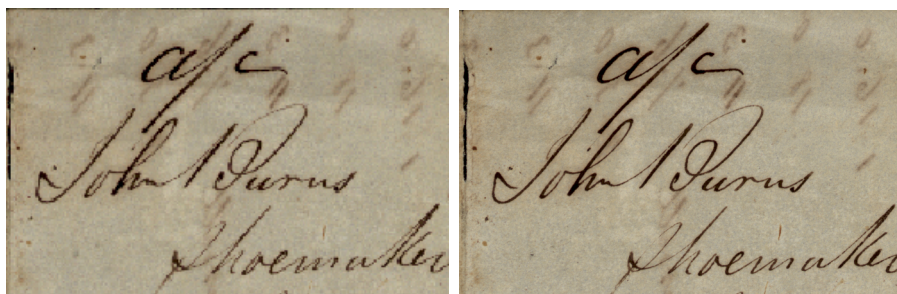 a/c
John Burns
Shoemaker
a/c
John Burns
Shoemaker